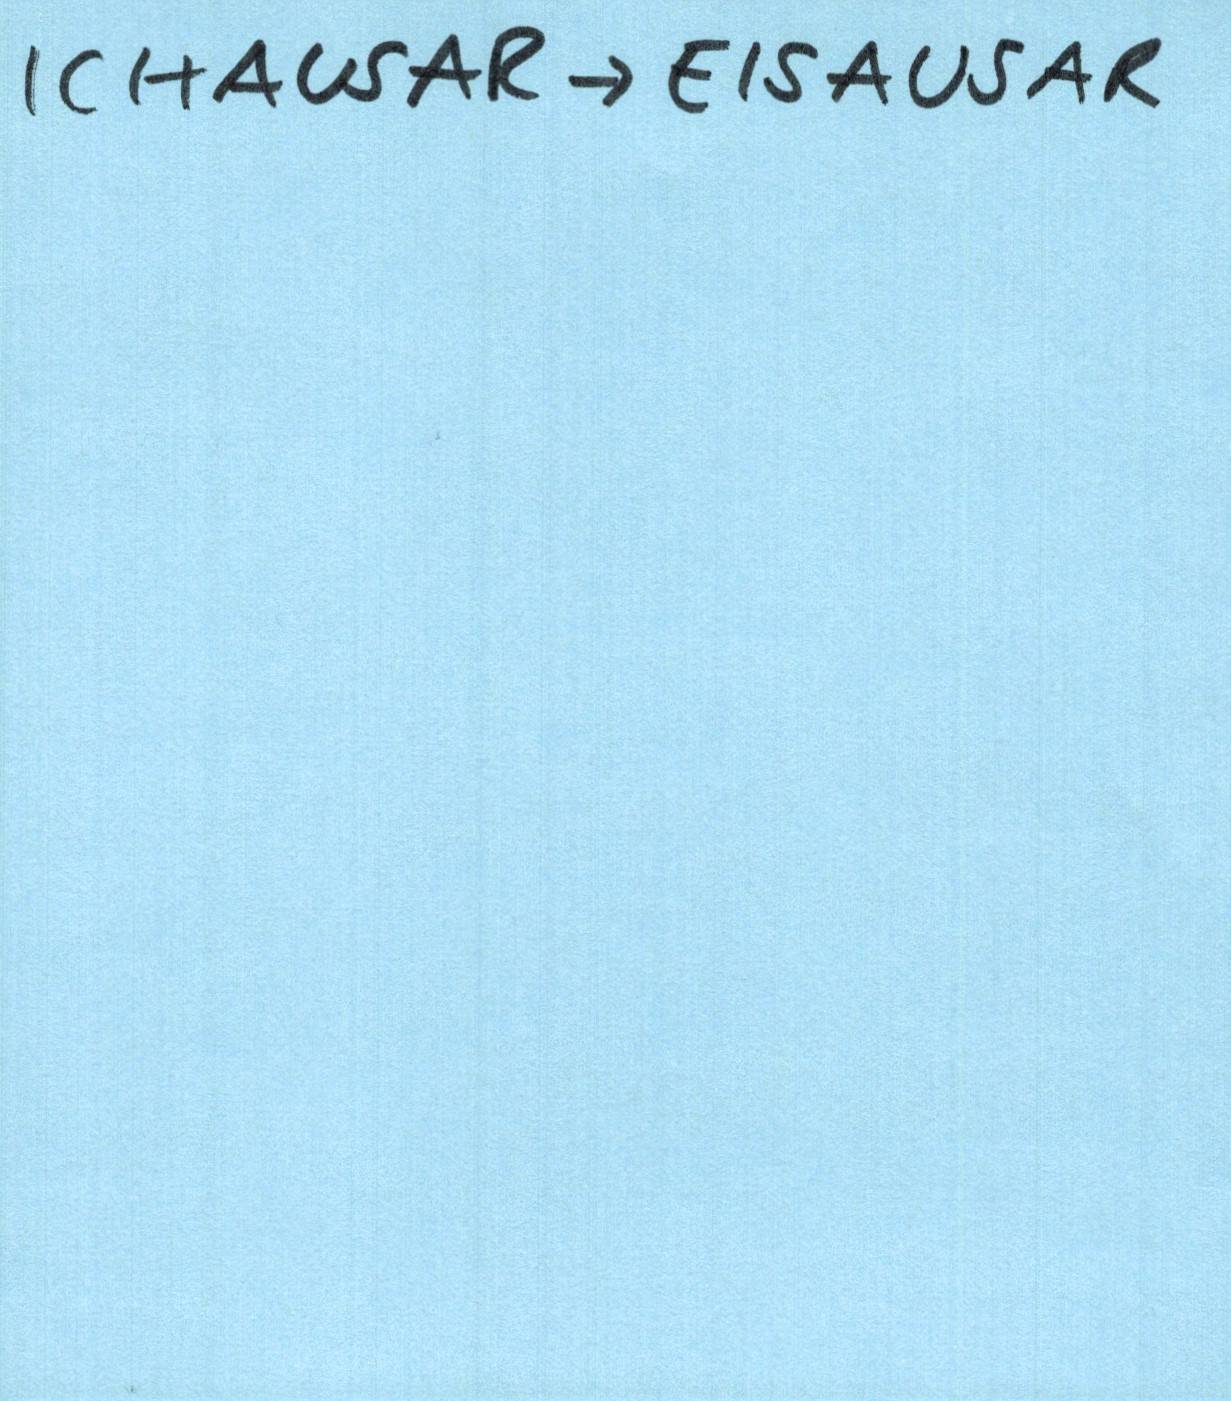 ICHAUSAR → EISAUSAR